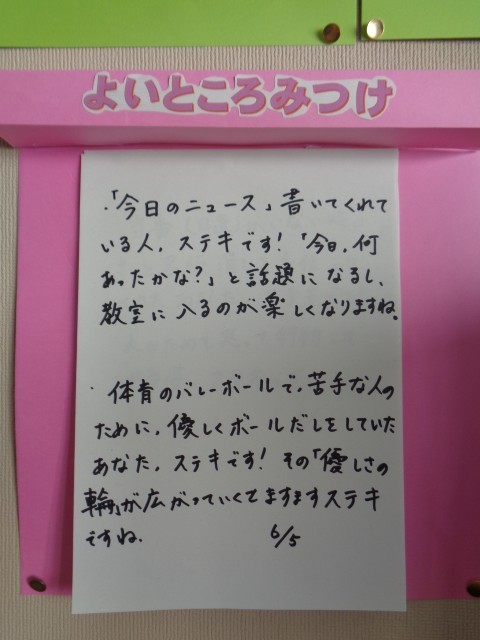 よいところみつけ
・「今日のニュース」書いてくれて
いる人、ステキです!「今日、何
あったかな?」と話題になるし、
教室に入るのが楽しくなりますね。
・体育のバレーボールで、苦手な人の
ために、優しくボールだしをしていた
あなた、ステキです!その「優しさの
輪」が広がっていくてますますステキ
ですね。 6/5